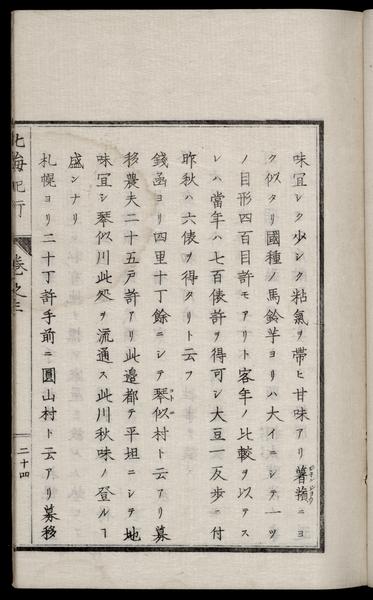 味宜シク少シク粘氣ヲ帶ヒ甘味アリ薯蕷ニヨ
ク似タリ國種ノ馬鈴芋ヨリハ大イニシテ一ツ
ノ目形四百目許モアリト客年ノ比較ヲ以テス
レハ當年ハ七百俵許ヲ得可シ大豆一反歩ニ付
昨秋ハ六俵ヲ得タリト云フ
錢函ヨリ四里十丁餘ニシテ琴似村ト云アリ募
移農夫二十五戸許アリ此邊都テ平坦ニシテ地
味宜シ琴似川此処ヲ流通ス此川秋味ノ登ルヿ
盛ンナリ
札幌ヨリ二十丁許手前ニ圓山村ト云アリ募移
北海紀行
卷之三
二十四